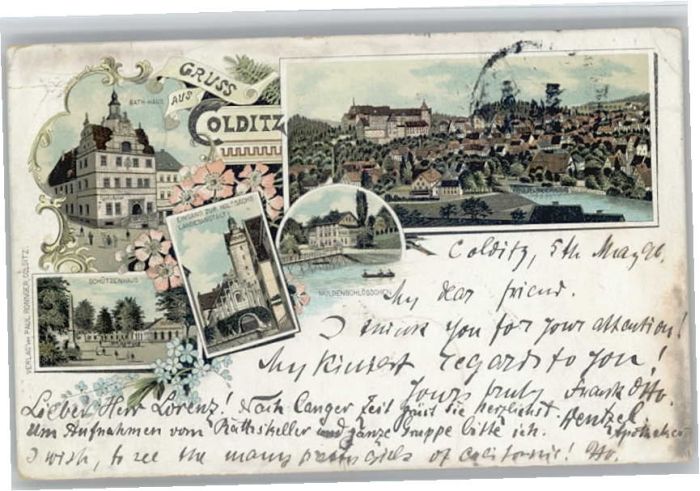 GRUSS
AUS
COLDITZ
RATH-HAUS
EINGANG ZUR KGL. SÄCHS.
LANDESANSTALT
MULDENSCHLÖSSCHEN
SCHÜTZENHAUS
VERLAG von PAUL RONNIGER, COLDITZ.
Colditz, 5th May 96.
My dear friend.
I think you for your attention!
My kindest regards to you!
Yours truly Frank Otto.
Lieber Herr Lorenz! Nach langer Zeit grüsst Sie herzlichst Hentzel.
Um Aufnahmen vom Rathskeller und ganze Gruppe bitte ich. Apotheker
I wish, to see the many pretty girls of california!